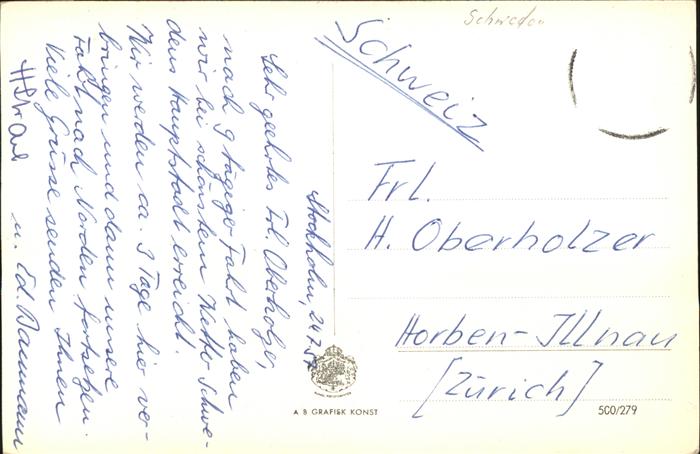 Schweden
Schweiz
Stockholm, 24.7.57
Sehr geehrtes Frl. Oberholzer,
nach 9 tägiger Fahrt haben
wir bei schönstem Wetter Schwe-
dens Hauptstadt erreicht.
Wir werden ca. 3 Tage hier ver-
bringen und dann unsere
Fahrt nach Norden fortsetzen.
Viele Grüsse senden Ihnen
u. Ed. Baumann
Frl.
H. Oberholzer
Horben-Illnau
[Zürich]
A B GRAFISK KONST
500/279